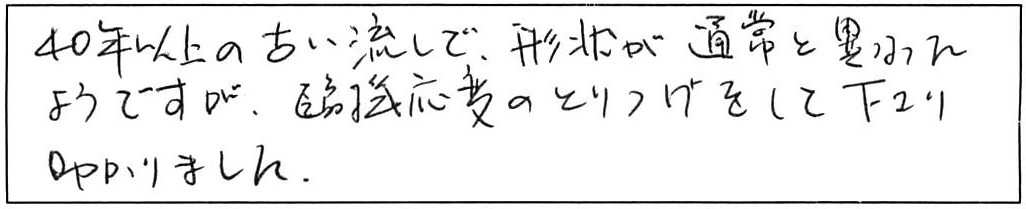 40年以上の古い流しで、形状が通常と異なった
ようですが、臨機応変のとりつけをして下さり
助かりました.